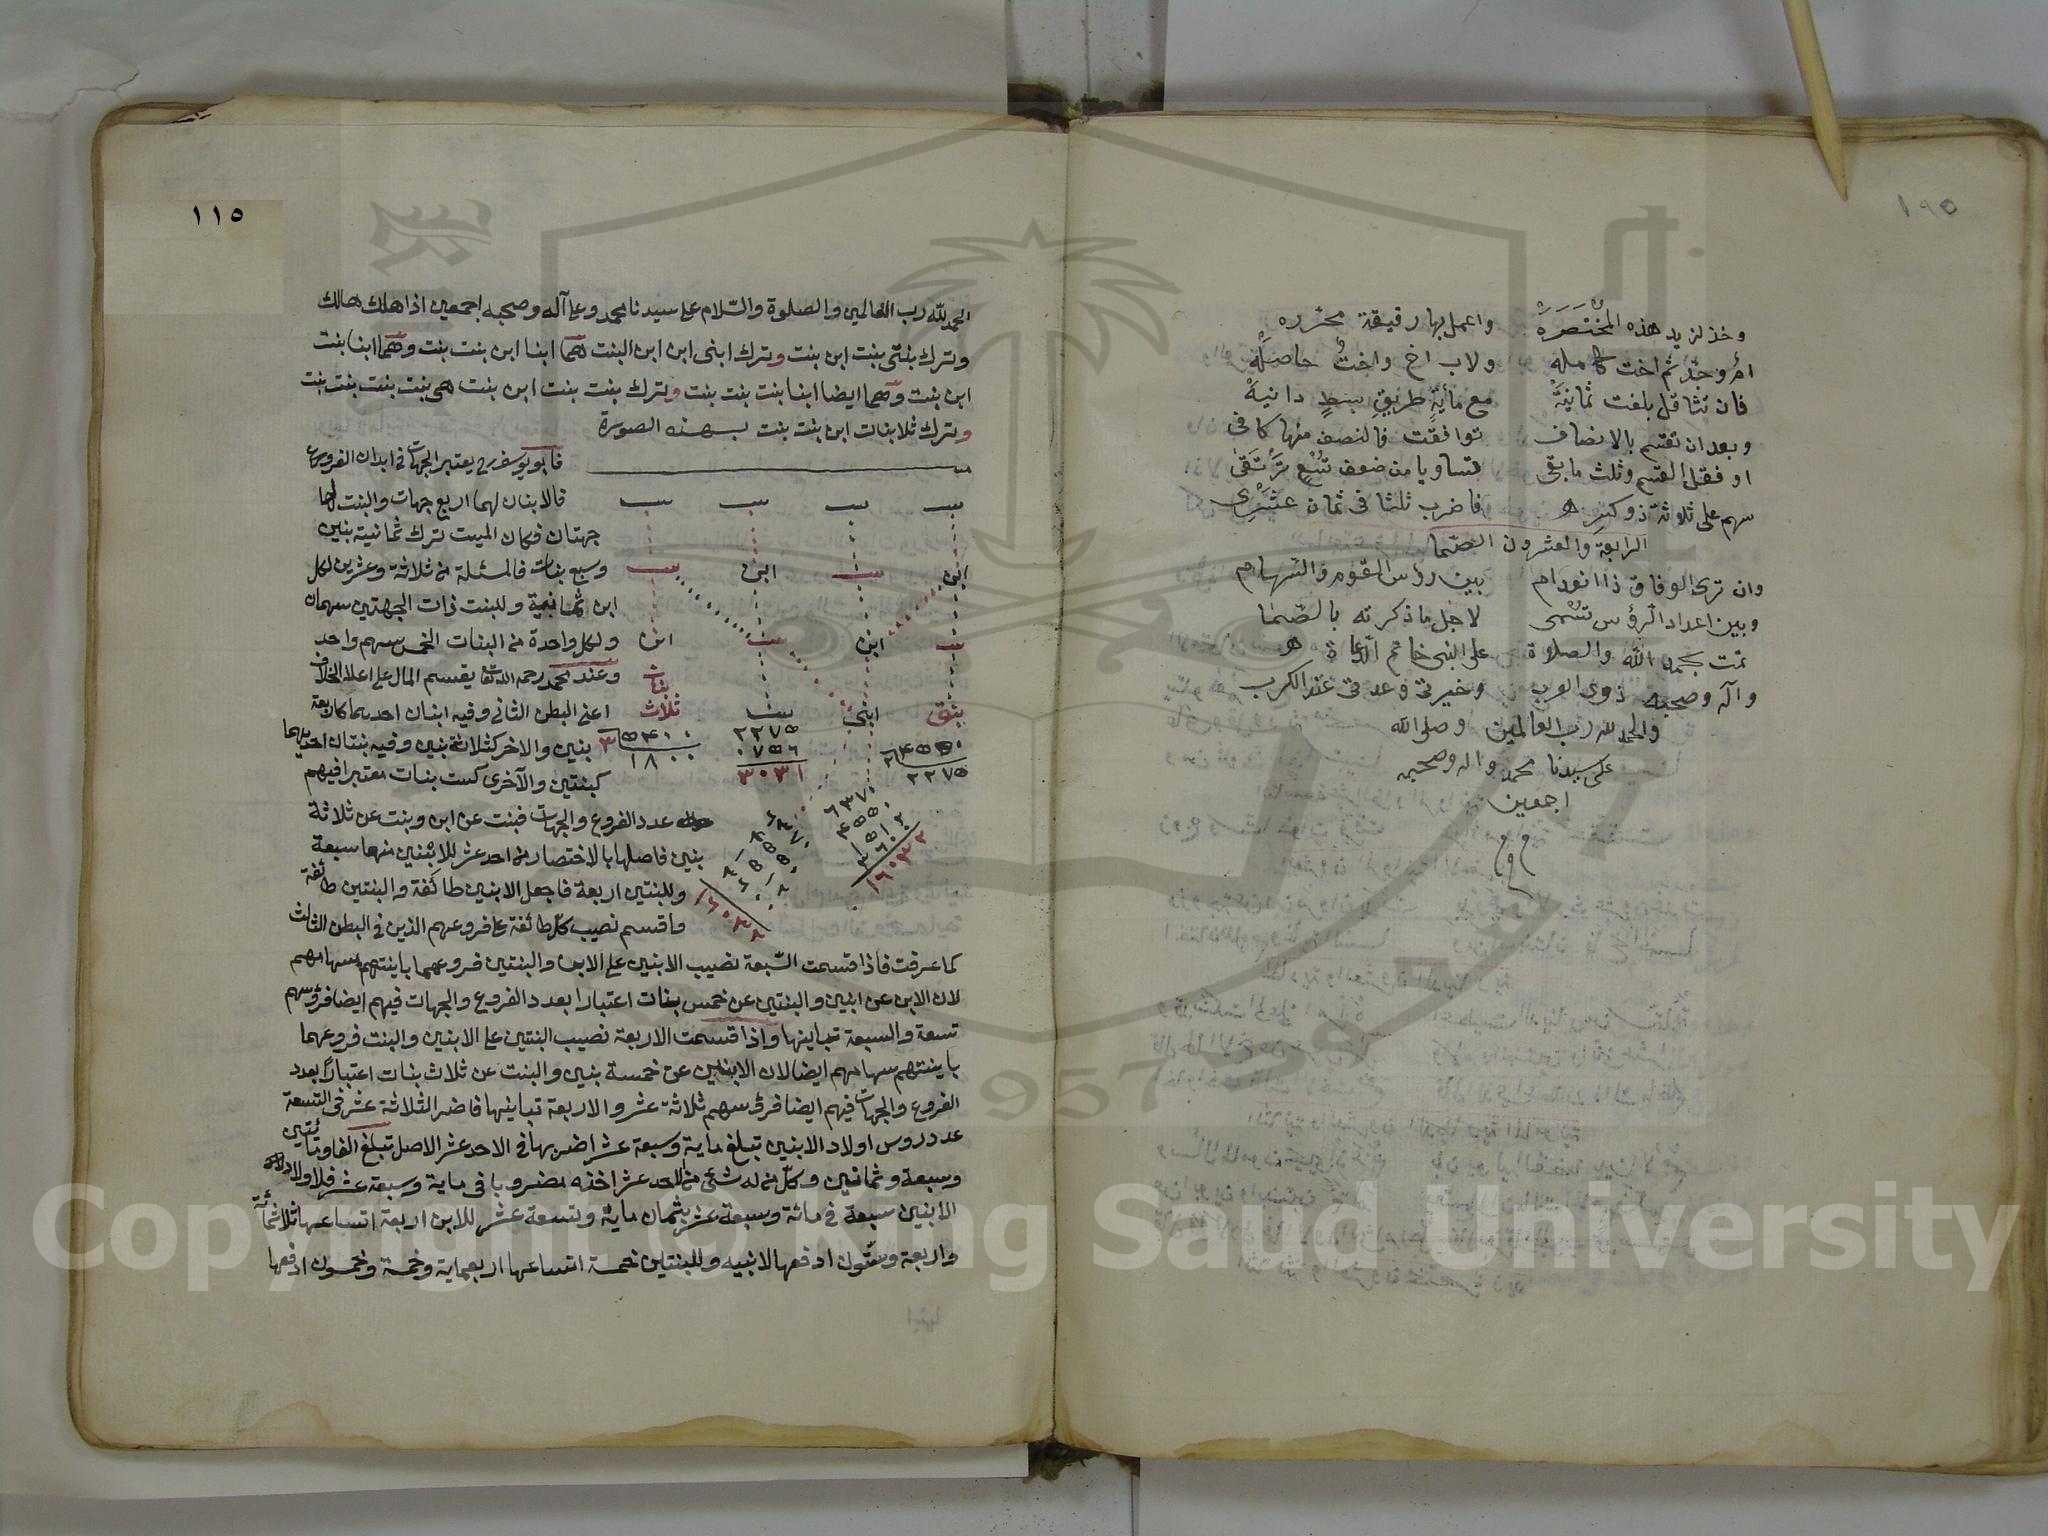 ١٩٥
وخذ لزيد هذه المختصرة واعمل بها رقيقة محرره
ام وجد ثم اخت كامله ولاب اخ واخت حاصله
فان تثاقل بلغت ثمانية مع مأية طريق بسط دانية
وبعد ان تقسم بالانصاف توافقت فالنصف منها كافى
او فقل القسم وثلث ما بقى فتساويا من ضعف تسع
سهم على ثلاثة ذو كسر فاضرب ثلثا فى ثمان عشر
الرابعة والعشرون الصما
وان ترى الوفاق ذا انعدام بين رؤس القوم والسهام
وبين اعداد الرؤس تسمى لاجل ما ذكرته بالصما
تمت بحمد الله والصلاة على النبى خاتم الدعاة
وآله وصحبه ذوى العرب وخيرتى وعدتى عند الكرب
والحمد لله رب العالمين وصلى الله
على سيدنا محمد واله وصحبه
اجمعين
١١٥
الحمد لله رب العالمين والصلوة والسلام على سيدنا محمد وعلى آله وصحبه اجمعين اذا هلك هالك
وترك بنتى بنت ابن بنت وترك ابنى ابن ابن البنت هما ابنا ابن بنت بنت وهما ابنا بنت
ابن بنت وهما ايضا ابنا بنت بنت بنت وترك بنت بنت ابن بنت هى بنت بنت بنت بنت
وترك ثلاث بنات ابن بنت بنت بهذه الصورة
فابو يوسف يعتبر الجهات فى ابدان الفروع
فالابنان لهما اربع جهات والبنت لها
جهتان فكان الميت ترك ثمانية بنين
وسبع بنات فالمسئلة من ثلاثة وعشرين لكل
ابن ثمانية وللبنت ذات الجهتين سهمان
ولكل واحدة من البنات الخمس سهم واحد
وعند محمد رحمه الله تعالى يقسم المال على اعلا الخلاف
اعنى البطن الثانى وفيه ابنان احدهما كاربعة
بنين والاخر كثلاثة بنين وفيه بنتان احديهما
كبنتين والآخرى كست بنات معتبرا فيهم
عدد الفروع والجهات فبنت عن ابن وبنت عن ثلاثة
بنين فاصلها بالاختصار من احد عشر للابنين منها سبعة
وللبنتين اربعة فاجعل الابنين طائفة والبنتين طائفة
واقسم نصيب كل طائفة على فروعهم الذين فى البطن الثالث
بنت بنت بنت بنت
ابن بنت ابن بنت
بنت ابن بنت ابن
بنتى ابنى بنت ثلاث بنات
٤٥٥٠ ٢
٢٢٧٥
٢٢٧٥
٠٧٥٦
٣٠٣١
٥٤٠٠ ٣
١٨٠٠
كما عرفت فاذا قسمت السبعة نصيب الابنين على الابن والبنتين فروعهما باينتهم سهامهم
لان الابن عن ابنين والبنتين عن خمس بنات اعتبارا بعدد الفروع والجهات فيهم ايضا فرؤسهم
تسعة والسبعة تباينها واذا قسمت الاربعة نصيب البنتين على الابنين والبنت فروعهما
باينتهم سهامهم ايضا لان الابنين عن خمسة بنين والبنت عن ثلاث بنات اعتبارا بعدد
الفروع والجهات فيهم ايضا فرؤسهم ثلاثة عشر والاربعة تباينها فاضرب الثلاثة عشر فى التسعة
عدد رؤس اولاد الابنين تبلغ ماية وسبعة عشر اضربها فى الاحد عشر الاصل تبلغ الفا ومائتين
وسبعة وثمانين وكل من له شئ من الاحد عشر اخذه مضروبا فى ماية وسبعة عشر فلاولاد
الابنين سبعة فى مائة وسبعة عشر بثمان ماية وتسعة عشر للابن اربعة اتساعها ثلاثمائة
واربعة وستون ادفعها لابنيه وللبنتين خمسة اتساعها اربعماية وخمسة وخمسون ادفعها